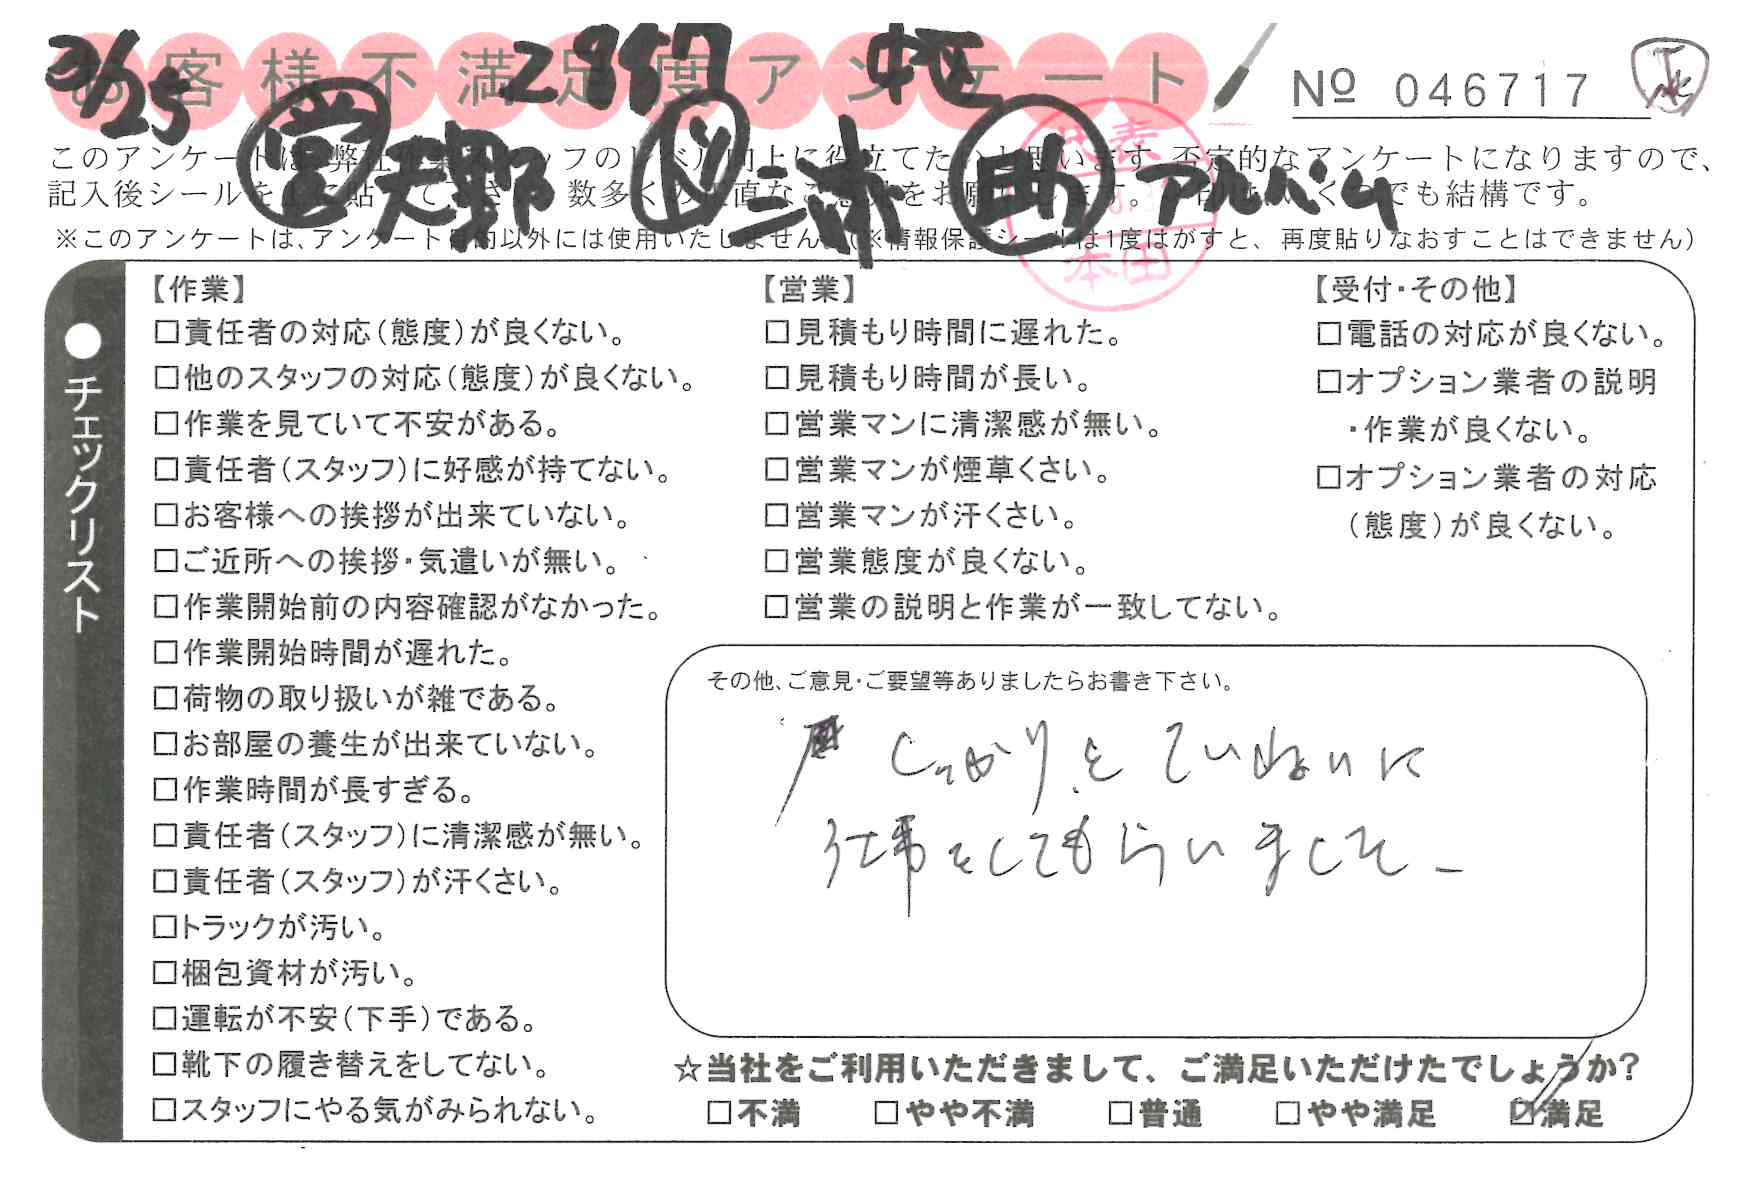 お客様不満足度アンケート
3/25 2957
Nº 046717
営 天野 ド 三浦 助 アルバム
代表 本田
このアンケートは、弊社作業スタッフのレベル向上に役立てたいと思います。否定的なアンケートになりますので、
記入後シールを上に貼って下さい。数多くの正直なご意見をお願いします。一言でもいくつでも結構です。
※このアンケートは、アンケート目的以外には使用いたしません。(※情報保護シールは1度はがすと、再度貼りなおすことはできません)
●チェックリスト
【作業】
□責任者の対応(態度)が良くない。
□他のスタッフの対応(態度)が良くない。
□作業を見ていて不安がある。
□責任者(スタッフ)に好感が持てない。
□お客様への挨拶が出来ていない。
□ご近所への挨拶・気遣いが無い。
□作業開始前の内容確認がなかった。
□作業開始時間が遅れた。
□荷物の取り扱いが雑である。
□お部屋の養生が出来ていない。
□作業時間が長すぎる。
□責任者(スタッフ)に清潔感が無い。
□責任者(スタッフ)が汗くさい。
□トラックが汚い。
□梱包資材が汚い。
□運転が不安(下手)である。
□靴下の履き替えをしてない。
□スタッフにやる気がみられない。
【営業】
□見積もり時間に遅れた。
□見積もり時間が長い。
□営業マンに清潔感が無い。
□営業マンが煙草くさい。
□営業マンが汗くさい。
□営業態度が良くない。
□営業の説明と作業が一致してない。
【受付・その他】
□電話の対応が良くない。
□オプション業者の説明
・作業が良くない。
□オプション業者の対応
(態度)が良くない。
その他、ご意見・ご要望等ありましたらお書き下さい。
しっかりとていねいに
仕事をしてもらいました。
☆当社をご利用いただきまして、ご満足いただけたでしょうか?
□不満 □やや不満 □普通 □やや満足 ☑満足